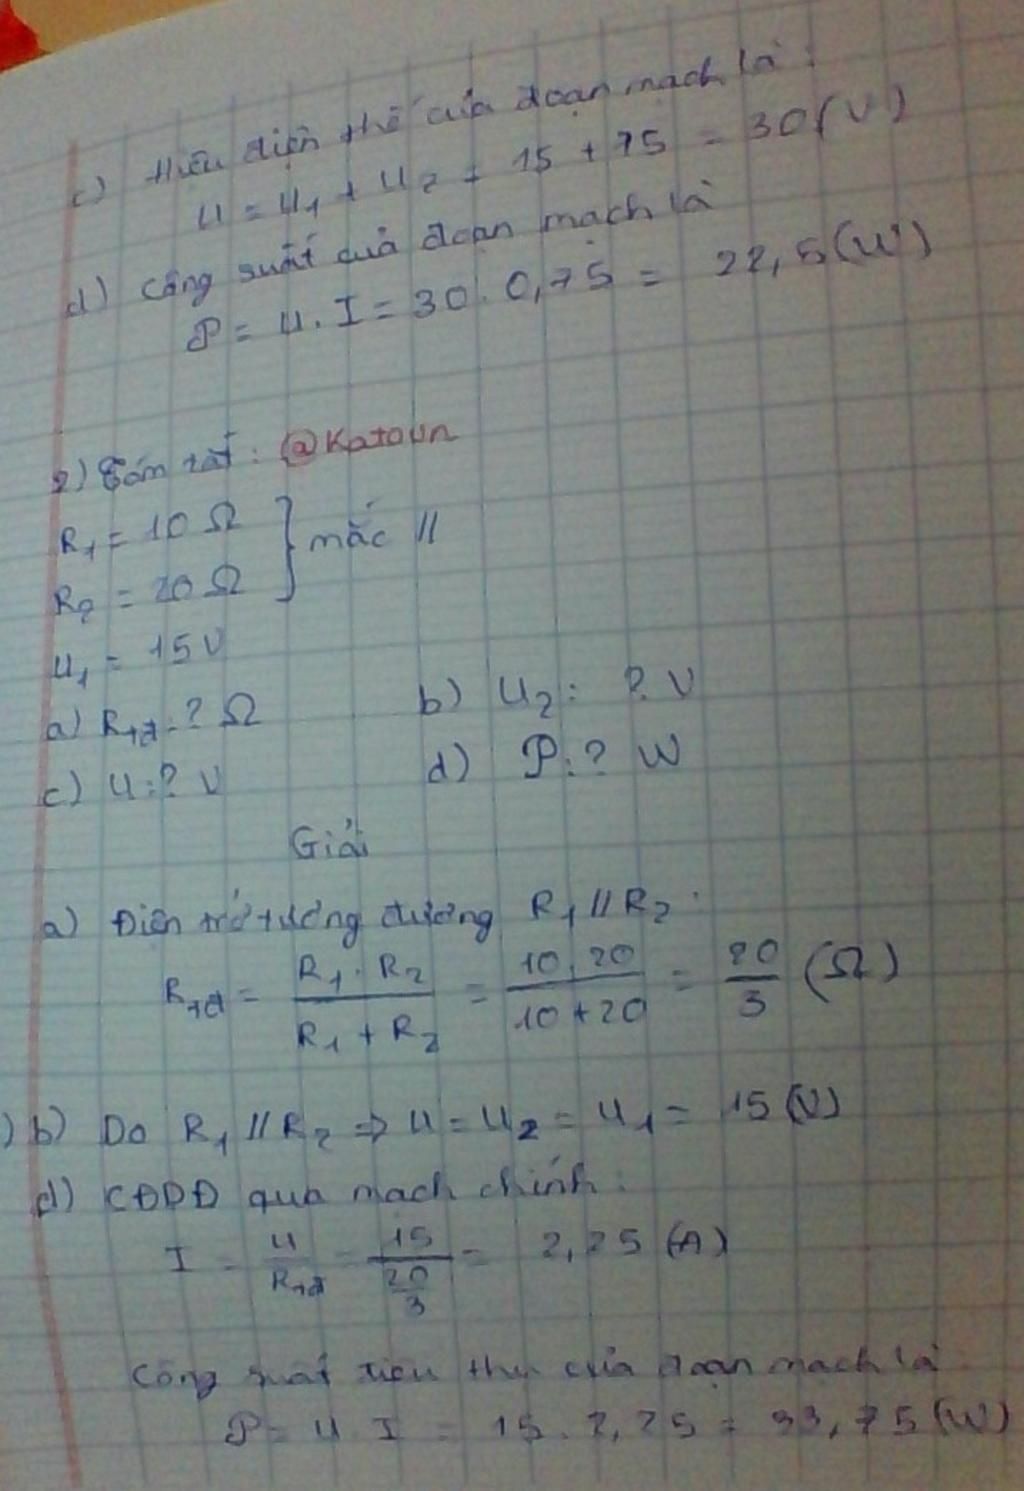 c) Hiệu điện thế của đoạn mạch là:
U = U₁ + U₂ = 15 + 15 = 30 (V)
d) Công suất của đoạn mạch là
P = U.I = 30.0,75 = 22,5 (W)
2) Tóm tắt: @Katoun
R₁ = 10 Ω } mắc //
R₂ = 20 Ω
U₁ = 15 V
a) Rtđ: ? Ω b) U₂: ? V
c) U: ? V d) P: ? W
Giải
a) Điện trở tương đương R₁ // R₂:
Rtđ = R₁.R₂ / R₁ + R₂ = 10.20 / 10 + 20 = 20/3 (Ω)
) b) Do R₁ // R₂ => U = U₂ = U₁ = 15 (V)
d) CĐDĐ qua mạch chính:
I = U / Rtđ = 15 / 20/3 = 2,25 (A)
Công suất tiêu thụ của đoạn mạch là
P = U.I = 15.2,25 = 33,75 (W)